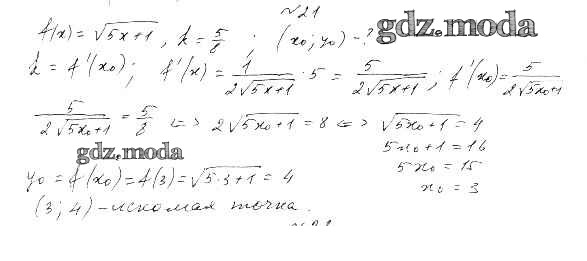 №21
f(x) = √5x+1, k = 5/8 ; (x₀; y₀) - ?
gdz.moda
k = f'(x₀); f'(x) = 1/(2√5x+1) · 5 = 5/(2√5x+1); f'(x₀) = 5/(2√5x₀+1)
5/(2√5x₀+1) = 5/8 <=> 2√5x₀+1 = 8 <=> √5x₀+1 = 4
5x₀+1 = 16
gdz.moda
5x₀ = 15
y₀ = f(x₀) = f(3) = √5·3+1 = 4
x₀ = 3
(3; 4) - искомая точка.